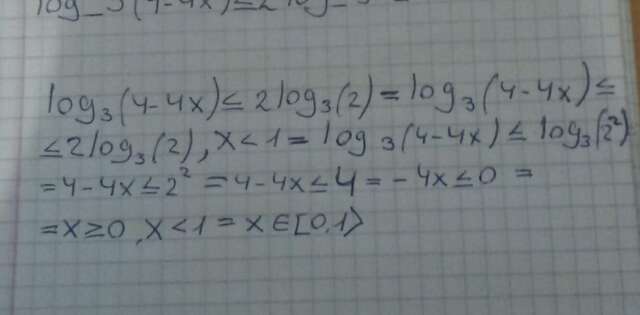 log_3(4-4x)≤2log_3
log₃(4-4x)≤ 2log₃(2)=log₃(4-4x)≤
≤2log₃(2), x<1= log₃(4-4x)≤log₃(2²)
=4-4x≤2² =4-4x≤4=-4x≤0 =
=x≥0, x<1=x∈[0,1⟩